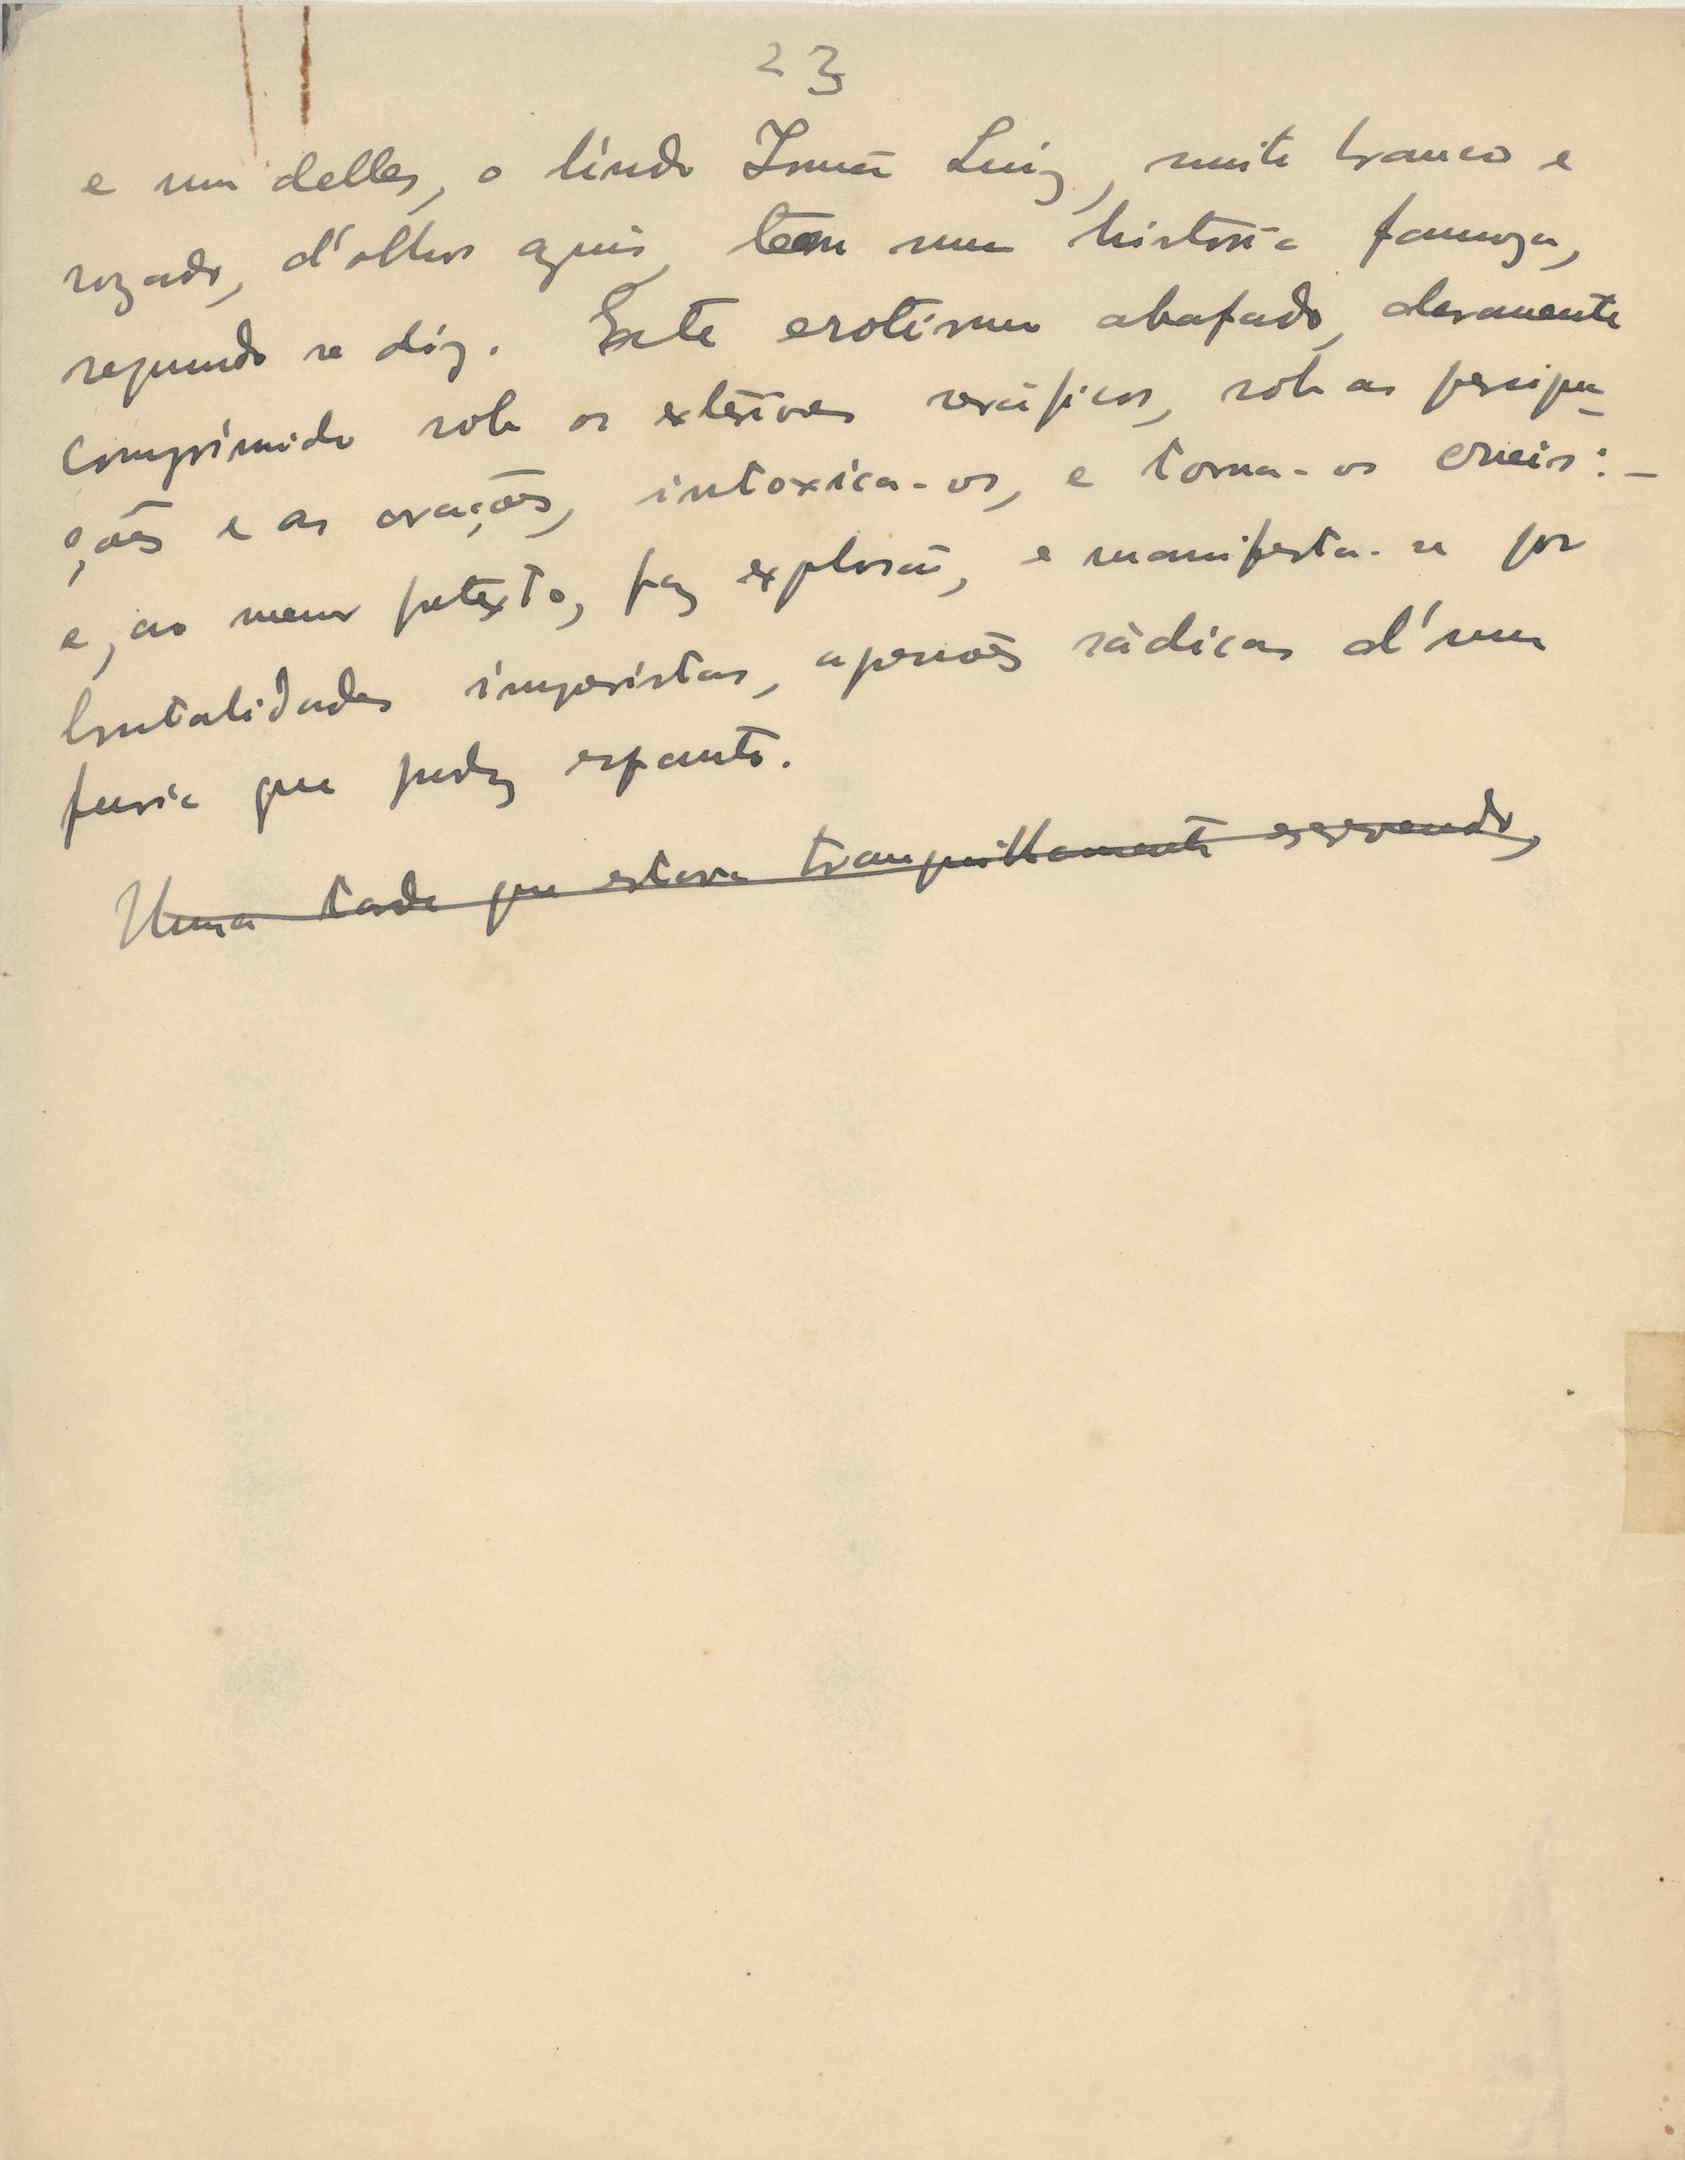 23
e um delles, o lindo Irmão Luiz, muito branco e
rozado, d'olhos azuis, tem uma historia famoza,
segundo se diz. Este erotismo abafado, duramente
comprimido sob os exteriores seráficos, sob as persigna-
ções e as orações, intoxica-os, e torna-os crueis: –
e, ao menor pretexto, faz explosão, e manifesta-se por
brutalidades imprevistas, agressões sádicas d'uma
furia que produz espanto.
Uma tarde que estava tranquillamente escrevendo,